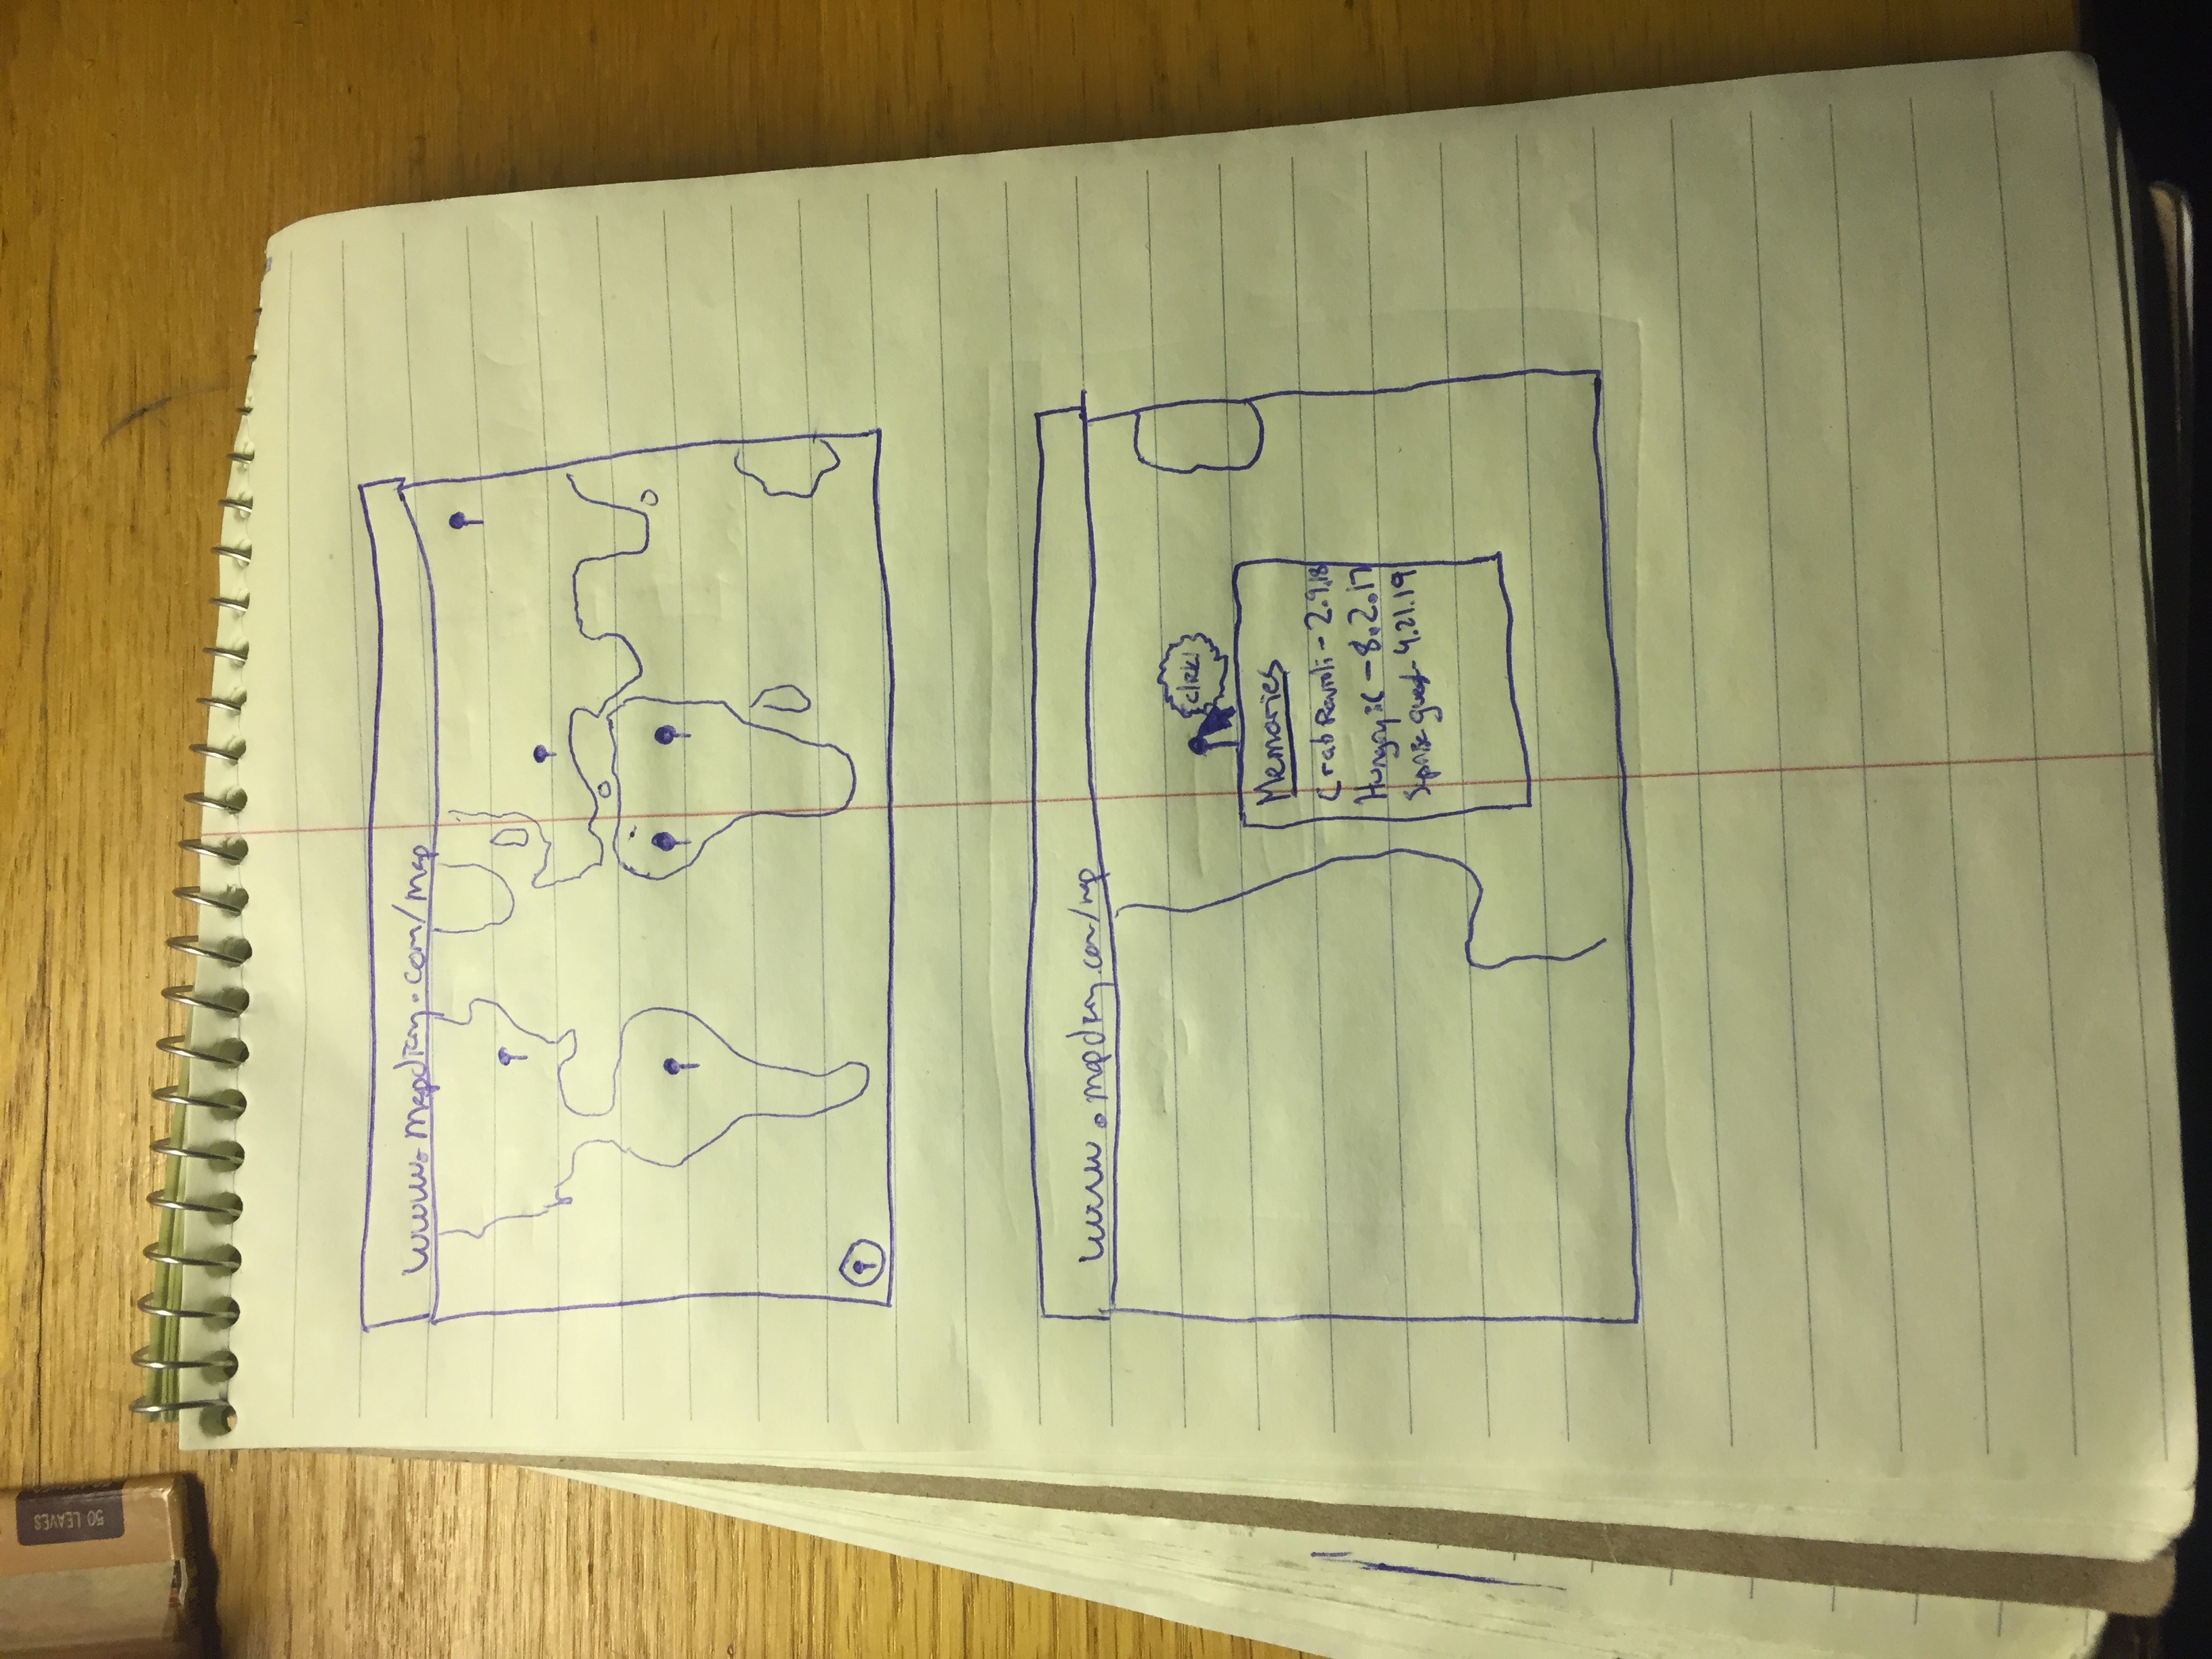 50 LEAVES
www.mapdiary.com/map
www.mapdiary.com/map
click!
Memories
Crab Ravioli - 2.9.18
- 8.2.17
guest - 4.21.19